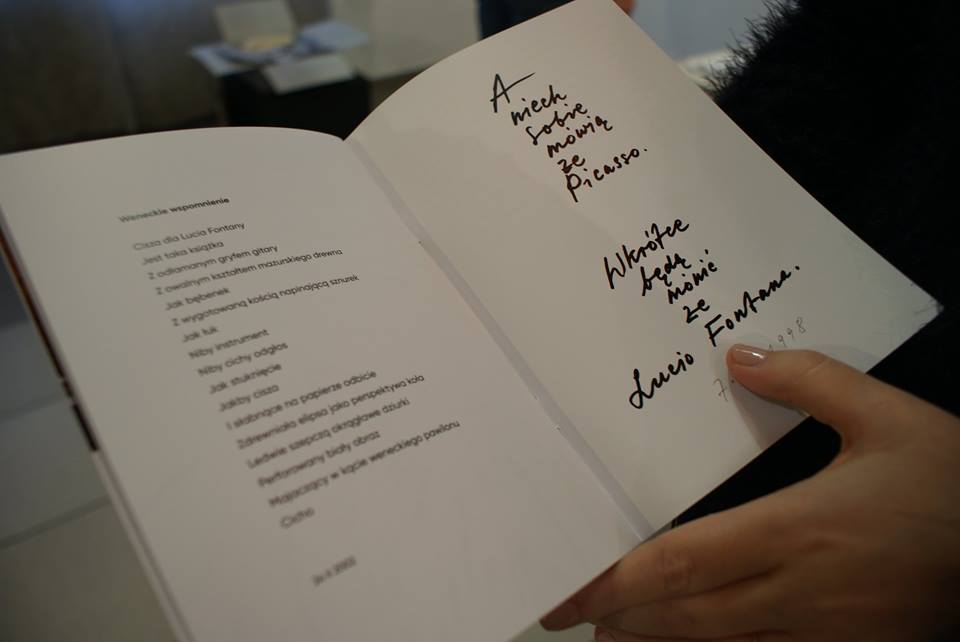 Weneckie wspomnienie
Cisza dla Lucia Fontany
Jest taka książka
Z odłamanym gryfem gitary
Z owalnym kształtem mazurskiego drewna
Jak bębenek
Z wygotowaną kością napinającą sznurek
Jak łuk
Niby instrument
Niby cichy odgłos
Jak stuknięcie
Jakby cisza
I słabnące na papierze odbicie
Zdrewniała elipsa jako perspektywa koła
Ledwie szepczą okrągławe dziurki
Perforowany biały obraz
Majaczący w kącie weneckiego pawilonu
Cicho
A
niech
sobie
mówią
że
Picasso.
Wkrótce
będą
mówić
że
Lucio Fontana.
7. 1998